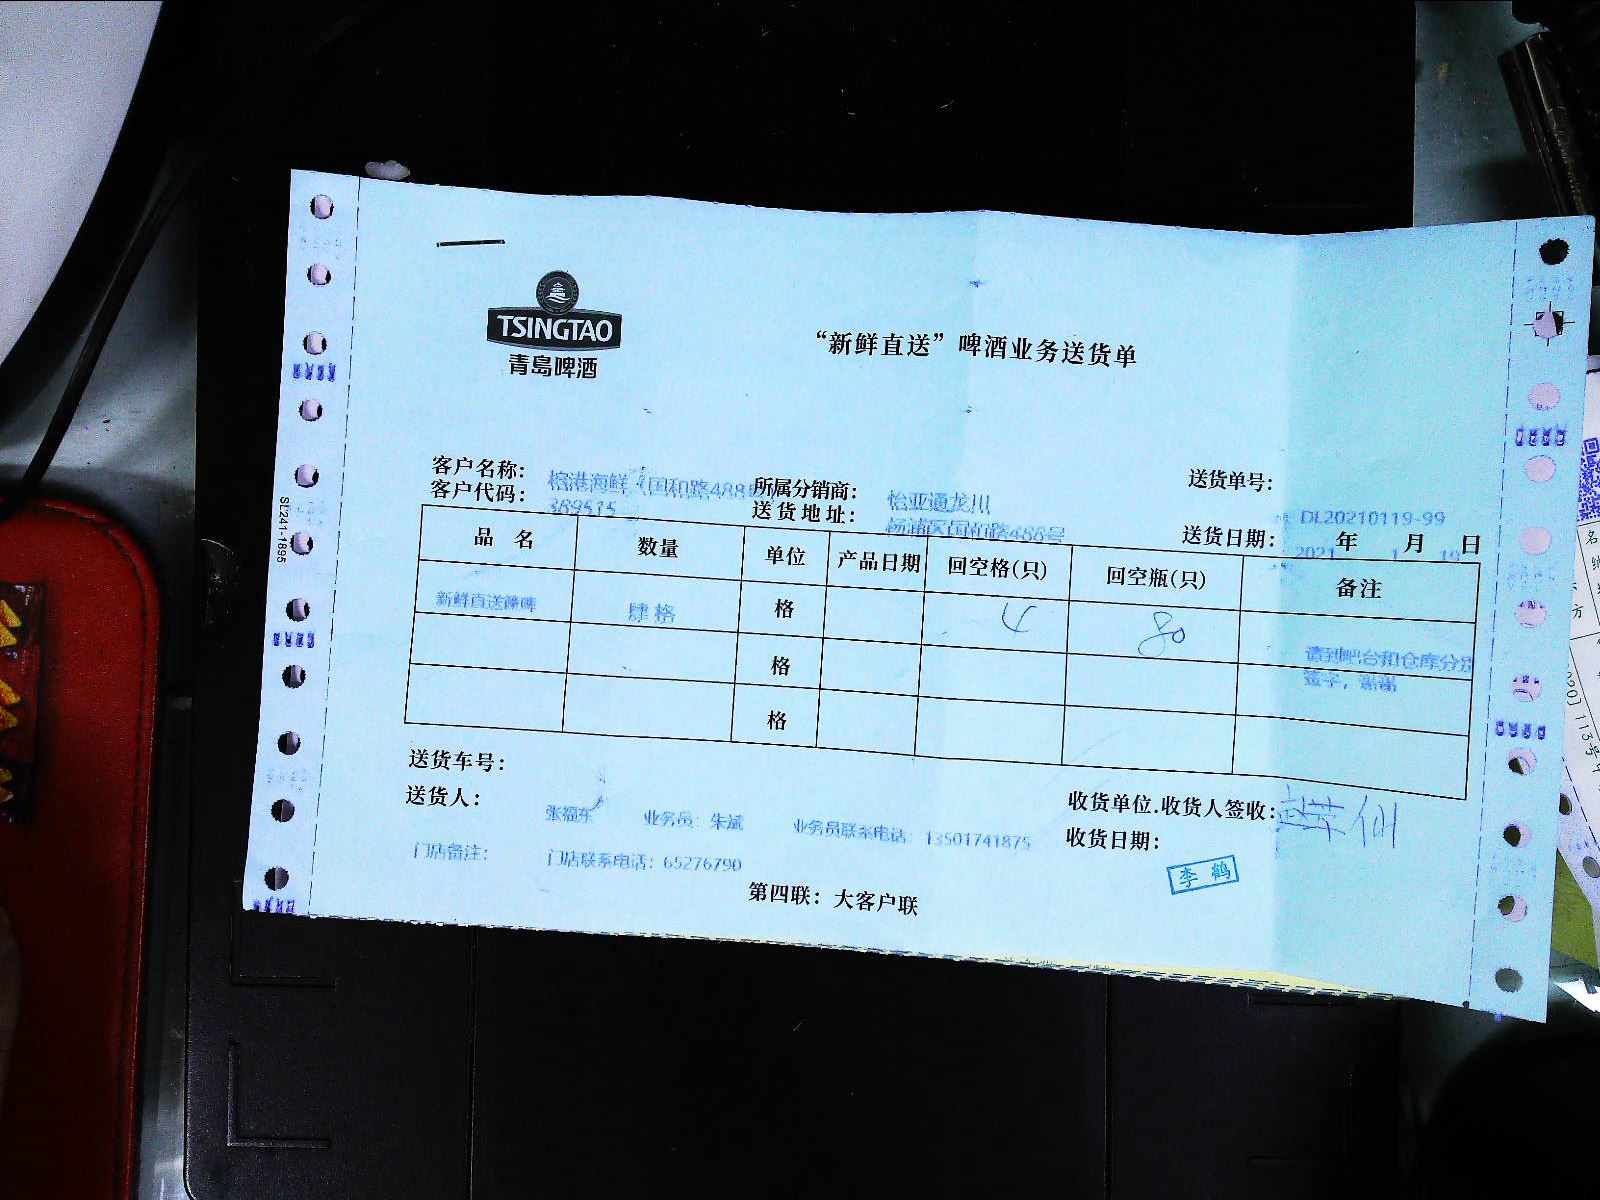 TSINGTAO
青岛啤酒
“新鲜直送”啤酒业务送货单
客户名称: 榕港海鲜（国和路488 所属分销商: 怡亚通龙川 送货单号: DL20210119-99
客户代码: 389515 送货地址: 杨浦区国和路488号 送货日期: 2021 年 1 月 19 日
品 名 数量 单位 产品日期 回空格(只) 回空瓶(只) 备注
新鲜直送 肆格 格 4 80 请到吧台和仓库分别
签字，谢谢
格
格
送货车号:
送货人: 张福东 业务员: 朱斌 业务员联系电话: 13501741875 收货单位.收货人签收:
收货日期:
门店备注: 门店联系电话: 65276790
李鹤
第四联: 大客户联
SL241-1895